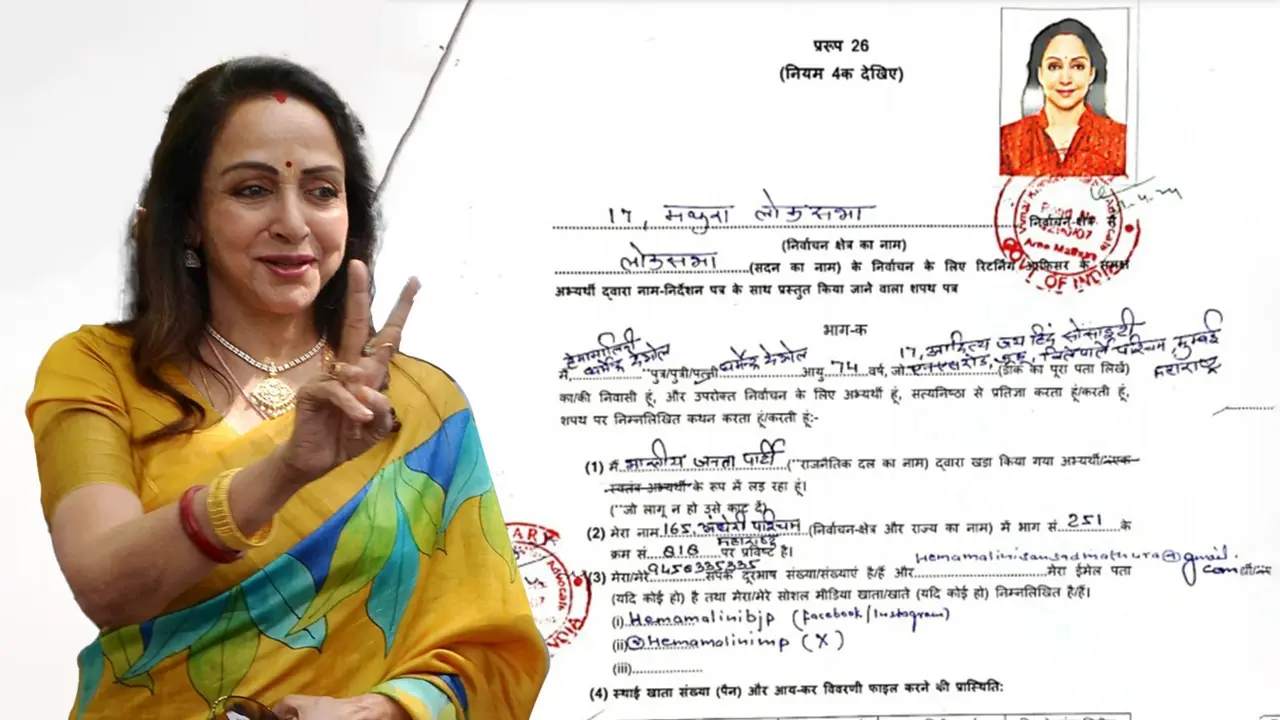 प्ररूप 26
(नियम 4क देखिए)
17, मथुरा लोकसभा निर्वाचन-क्षेत्र से
(निर्वाचन क्षेत्र का नाम)
लोकसभा (सदन का नाम) के निर्वाचन के लिए रिटर्निंग ऑफिसर के समक्ष
अभ्यर्थी द्वारा नाम-निर्देशन पत्र के साथ प्रस्तुत किया जाने वाला शपथ पत्र
GOVT. OF INDIA
भाग-क
हेमामालिनी 17, आदित्य जय हिंद सोसाइटी
मैं, धर्मेन्द्र देओल "पुत्र/पुत्री/पत्नी धर्मेन्द्र देओल आयु 74 वर्ष, जो विलेपार्ले पश्चिम, मुम्बई (डाक का पूरा पता लिखें) महाराष्ट्र
का/की निवासी हूं, और उपरोक्त निर्वाचन के लिए अभ्यर्थी हूं, सत्यनिष्ठा से प्रतिज्ञा करता हूं/करती हूं,
शपथ पर निम्नलिखित कथन करता हूं/करती हूं:-
(1) मैं भारतीय जनता पार्टी (''राजनैतिक दल का नाम) द्वारा खडा किया गया अभ्यर्थी/
स्वतंत्र अभ्यर्थी के रूप में लड़ रहा हूं।
(''जो लागू न हो उसे काट दें)
(2) मेरा नाम 165 अंधेरी पश्चिम महाराष्ट्र (निर्वाचन-क्षेत्र और राज्य का नाम) में भाग सं. 251 के
क्रम सं. 818 पर प्रविष्ट है।
hemamalinisansadmathura@gmail.com
(3) मेरा/मेरे 9456335335 संपर्क दूरभाष संख्या/संख्याएं है/हैं और मेरा ईमेल पता
(यदि कोई हो) है तथा मेरा/मेरे सोशल मीडिया खाता/खाते (यदि कोई हो) निम्नलिखित है/हैं।
(i) Hemamalinibjp (Facebook/Instagram)
(ii) @Hemamalinimp (X)
(iii)
(4) स्थाई खाता संख्या (पैन) और आय-कर विवरणी फाइल करने की प्रास्थिति: